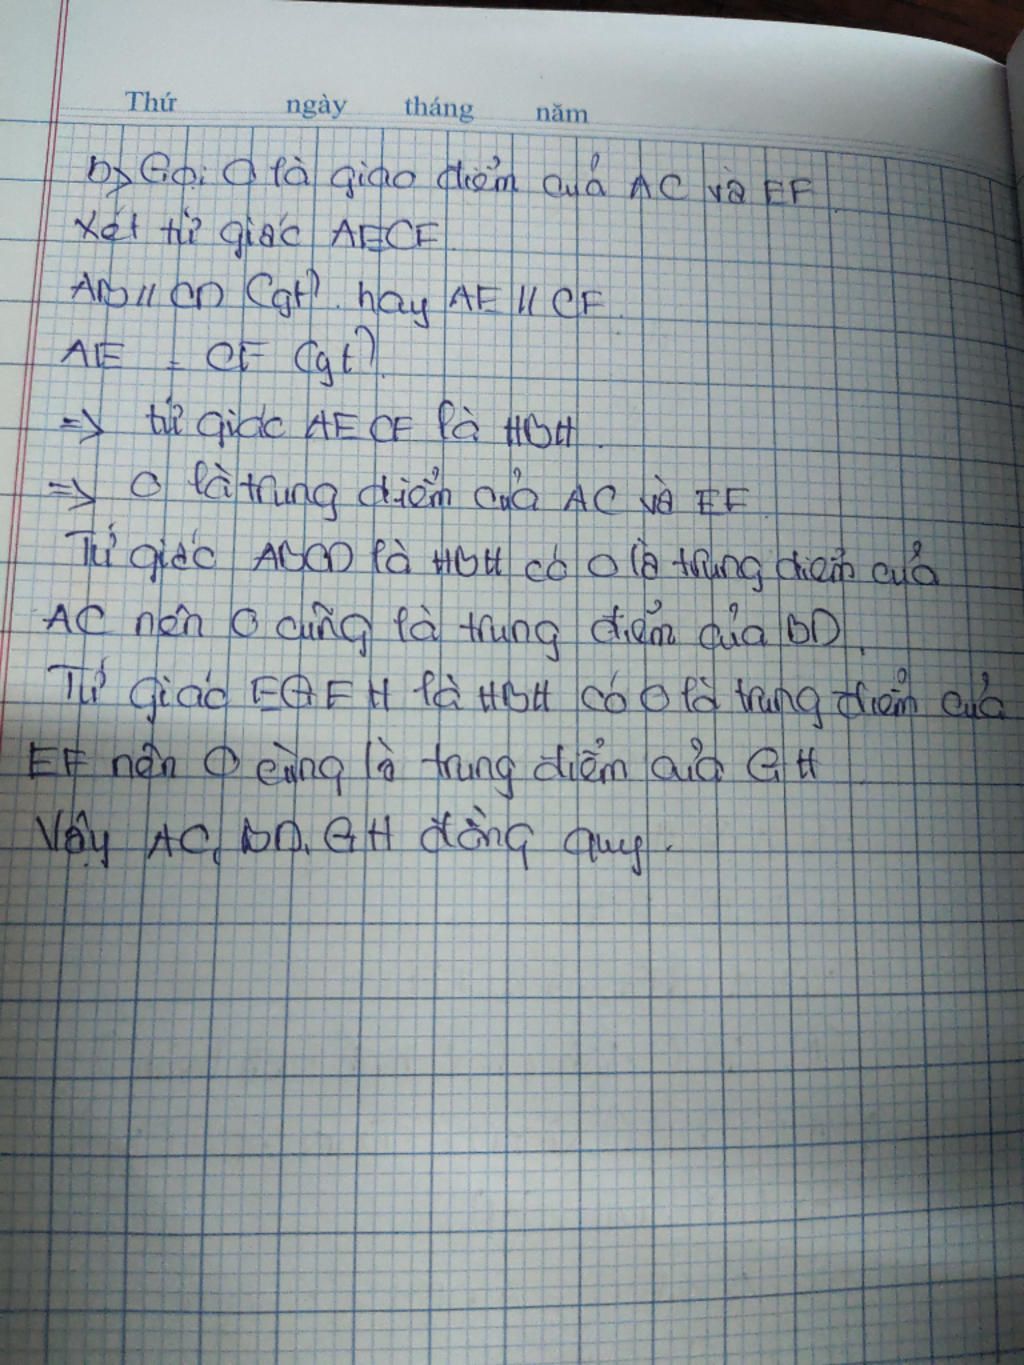 Thứ ngày tháng năm
b> Gọi O là giao điểm của AC và EF
Xét tứ giác AECF
AB // CD (gt) hay AE // CF.
AE = CF (gt).
=> tứ giác AECF là HBH.
=> O là trung điểm của AC và EF.
Tứ giác ABCD là HBH có O là trung điểm của
AC nên O cũng là trung điểm của BD.
Tứ giác EGFH là HBH có O là trung điểm của
EF nên O cũng là trung điểm của GH
Vậy AC, BD, GH đồng quy.